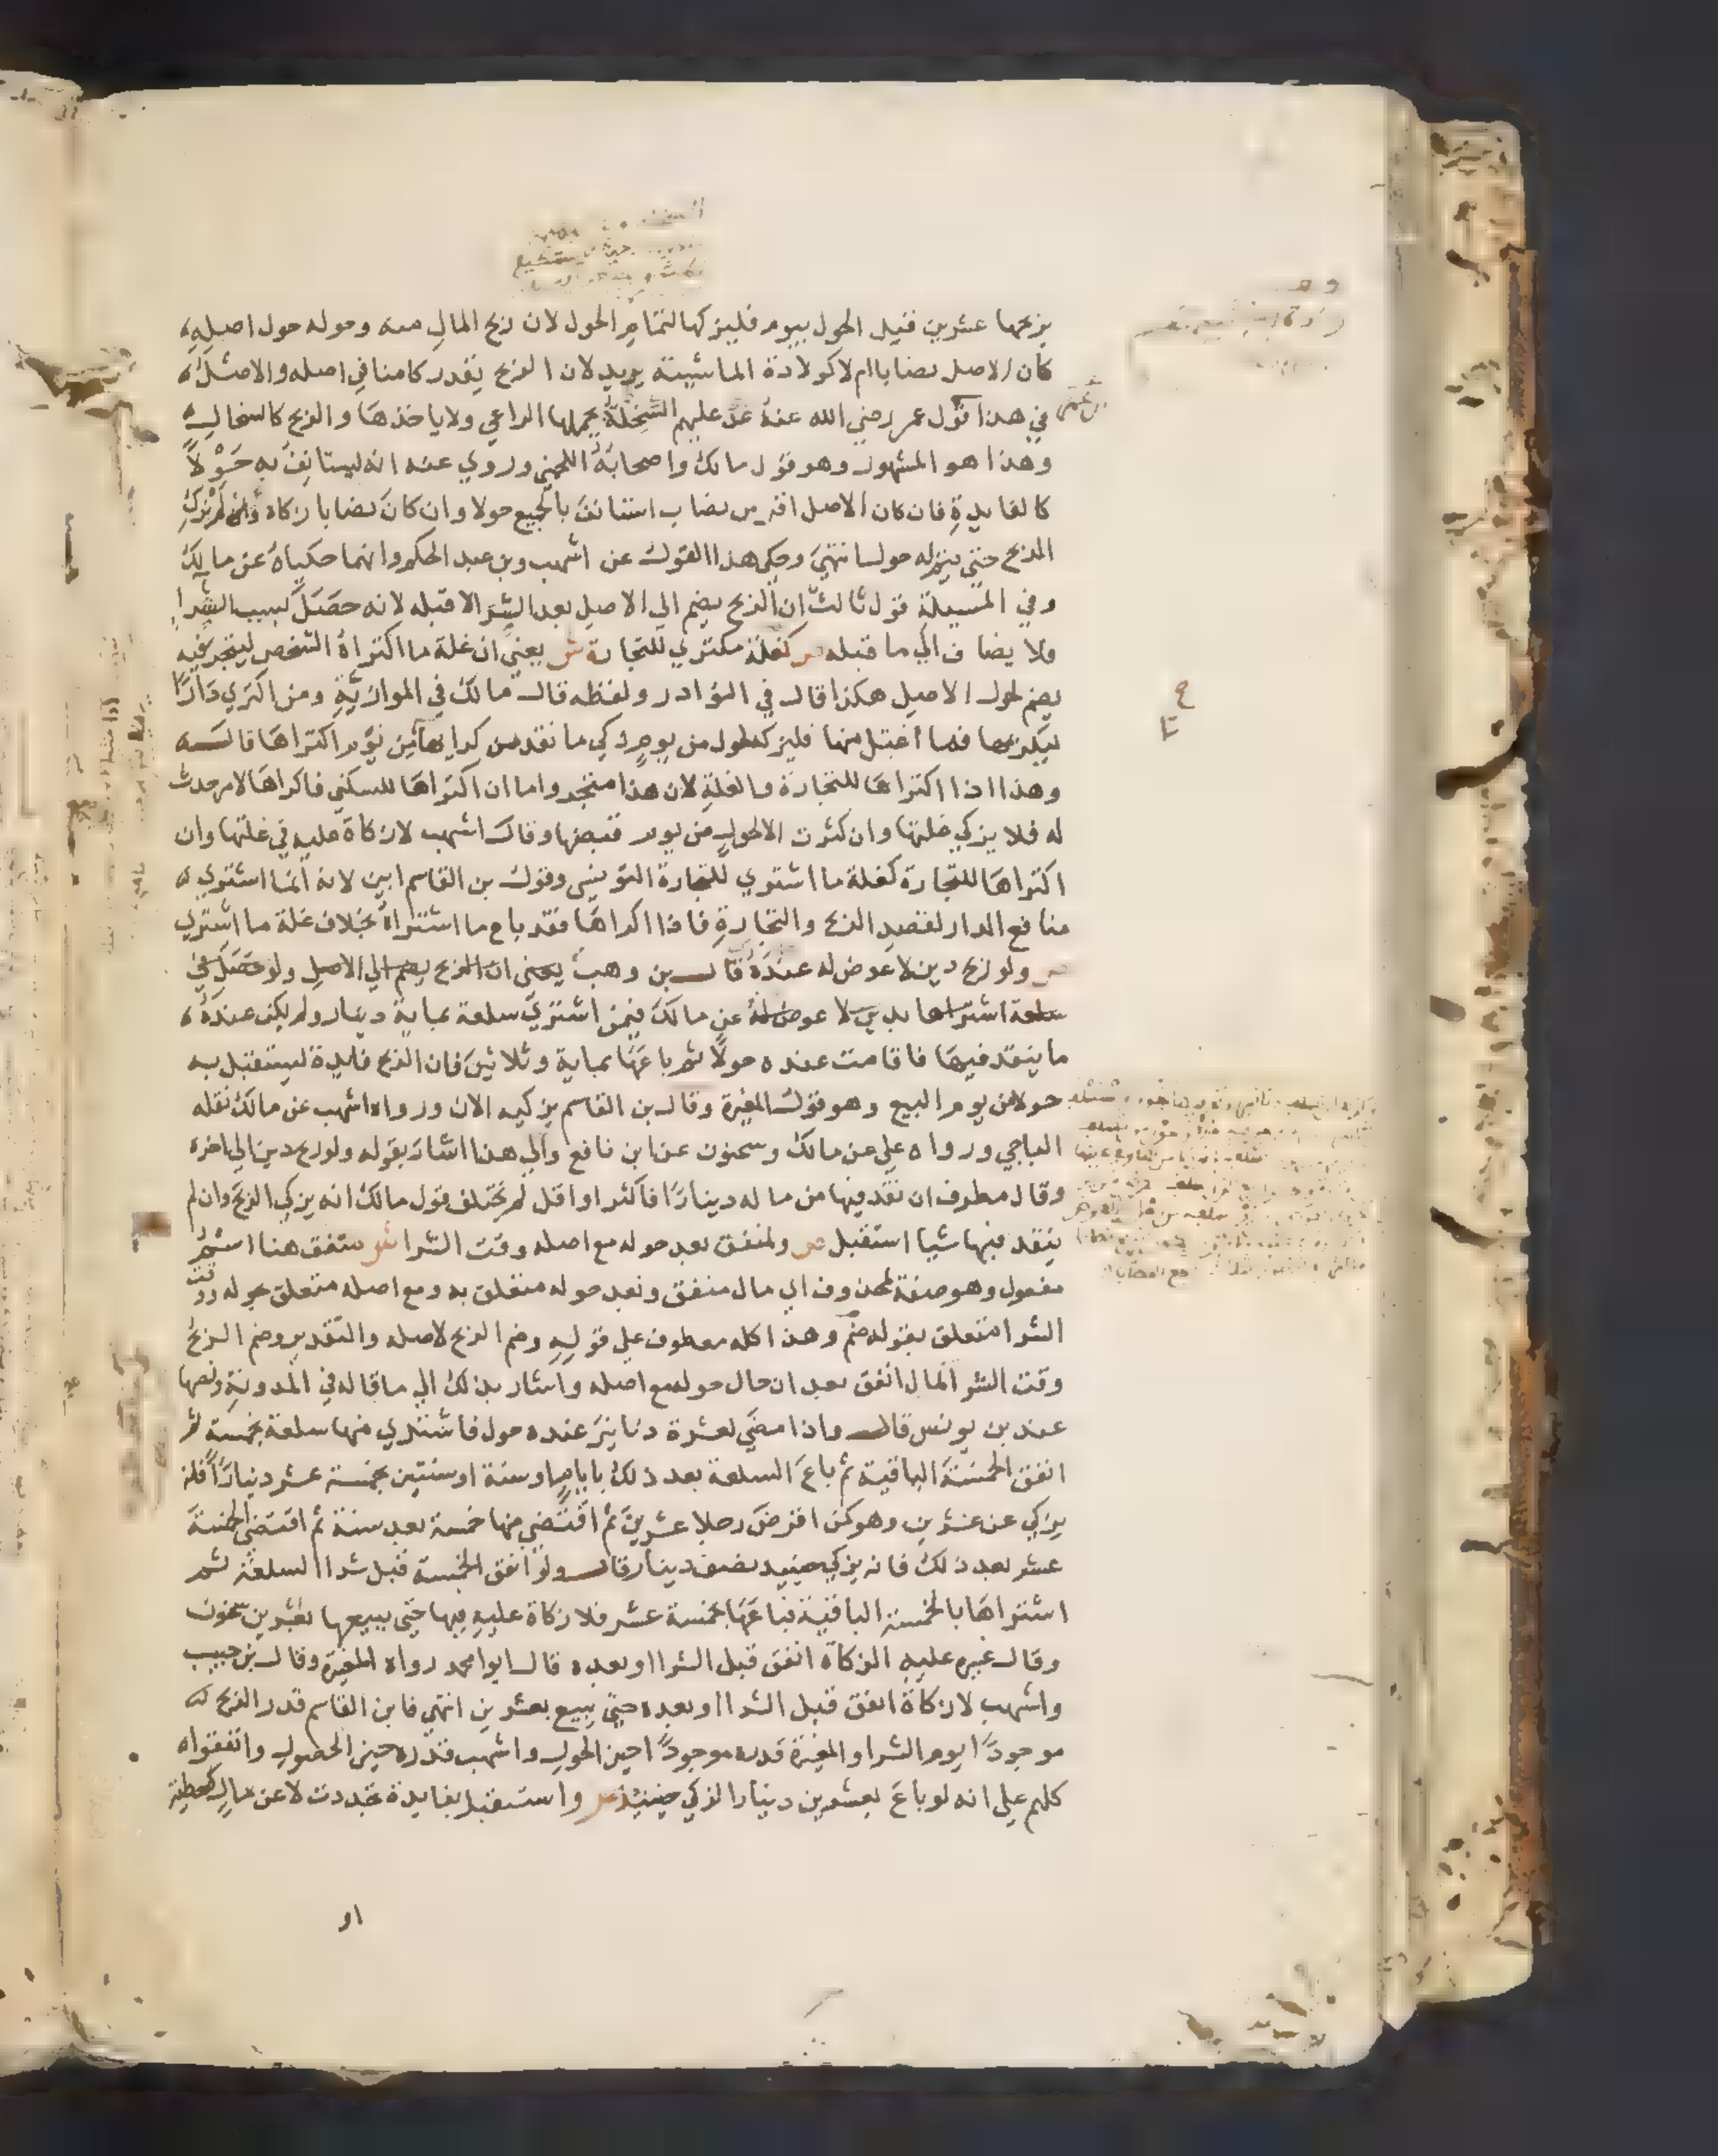 بربحها عشرين قبل الحول بيوم فليزكها لتمام الحول لان ربح المال منه وحوله حول اصله
كان الاصل نصابا ام لا كولادة الماشية يريد لان الربح يقدر كامنا في اصله والاصل
في هذا قول عمر رضي الله عنه عد عليهم السخلة يحملها الراعي ولا ياخذها والربح كالسخال
وهذا هو المشهور وهو قول مالك واصحابه اللخمي وروي عنه انه ليستانف به حولا
كالفايدة فان كان الاصل اقل من نصاب استانف بالجميع حولا وان كان نصابا زكاه ولم يزك
الربح حتي يتم له حول انتهي وحكي هذا القول عن اشهب وبن عبد الحكم وانهما حكياه عن مالك
وفي المسيلة قول ثالث ان الربح يضم الي الاصل بعد الشرا لا قبله لانه حصل بسبب الشرا
ولا يضاف الي ما قبله ص كغلة مكتري للتجارة ش يعني ان غلة ما اكتراه الشخص ليتجر فيه
يضم لحول الاصل هكذا قال في النوادر ولفظه قال مالك في الموازية ومن اكتري دارا
ليكريها فما اغتل منها فليزكه لحول من يوم زكي ما نقد من كرايها لا من يوم اكتراها قال
وهذا اذا اكتراها للتجارة والغلة لان هذا متجر واما ان اكتراها للسكني فاكراها لامر حدث
له فلا يزكي غلتها وان كثرت الا لحول من يوم قبضها وقال اشهب لا زكاة عليه في غلتها وان
اكتراها للتجارة كغلة ما اشتري للتجارة التونسي وقول بن القاسم ابين لانه انما اشتري
منافع الدار لقصد الربح والتجارة فاذا اكراها فقد باع ما اشتراه بخلاف غلة ما اشتري
ص ولو ربح دين لا عوض له عنده قال بن وهب يعني ان الربح يضم الي الاصل ولو حصل في
سلعة اشتراها بدين لا عوض له عن مالك فيمن اشتري سلعة بماية دينار ولم يكن عنده
ما ينقد فيها فاقامت عنده حولا ثم باعها بماية وثلاثين فان الربح فايدة ليستقبل به
حولا من يوم البيع وهو قول المغيرة وقال بن القاسم يزكيه الان ورواه اشهب عن مالك نقله
الباجي ورواه علي عن مالك وسحنون عن ابن نافع والي هذا اشار بقوله ولو ربح دين الي اخره
وقال مطرف ان نقد فيها من ماله دينارا فاكثر او اقل لم يختلف قول مالك انه يزكي الربح وان لم
ينقد فيها شيا استقبل ص ولمنفق بعد حوله مع اصله وقت الشرا ش منفق هنا اسم
مفعول وهو صفة لمحذوف اي مال منفق وبعد حوله متعلق به ومع اصله متعلق بحوله ووقت
الشرا متعلق بقوله ضم وهذا كله معطوف علي قوله وضم الربح لاصله والتقدير وضم الربح
وقت الشرا لمال انفق بعد ان حال حوله مع اصله واشار بذلك الي ما قاله في المدونة ونصها
عند بن يونس قال واذا مضي لعشرة دنانير عنده حول فاشتري منها سلعة بخمسة ثم
انفق الخمسة الباقية ثم باع السلعة بعد ذلك بايام او سنة او سنتين بخمسة عشر دينارا فانه
يزكي عن عشرين وهو كمن اقرض رجلا عشرين ثم اقتضي منها خمسة بعد سنة ثم اقتضي الخمسة
عشر بعد ذلك فانه يزكي حينيد نصف دينار قال ولو انفق الخمسة قبل شرا السلعة ثم
اشتراها بالخمسة الباقية فباعها بخمسة عشر فلا زكاة عليه فيها حتي يبيعها بعشرين سحنون
وقال غيره عليه الزكاة انفق قبل الشرا او بعده قال ابو محمد رواه المغيرة وقال بن حبيب
واشهب لا زكاة انفق قبل الشرا او بعده حتي يبيع بعشرين انتهي فابن القاسم قدر الربح
موجودا يوم الشرا والمغيرة قدره موجودا حين الحول واشهب قدره حين الحصول واتفقوا
كلهم علي انه لو باع بعشرين دينارا لزكي حينيذ ص واستقبل بفايدة تجددت لا عن مال كعطية
او